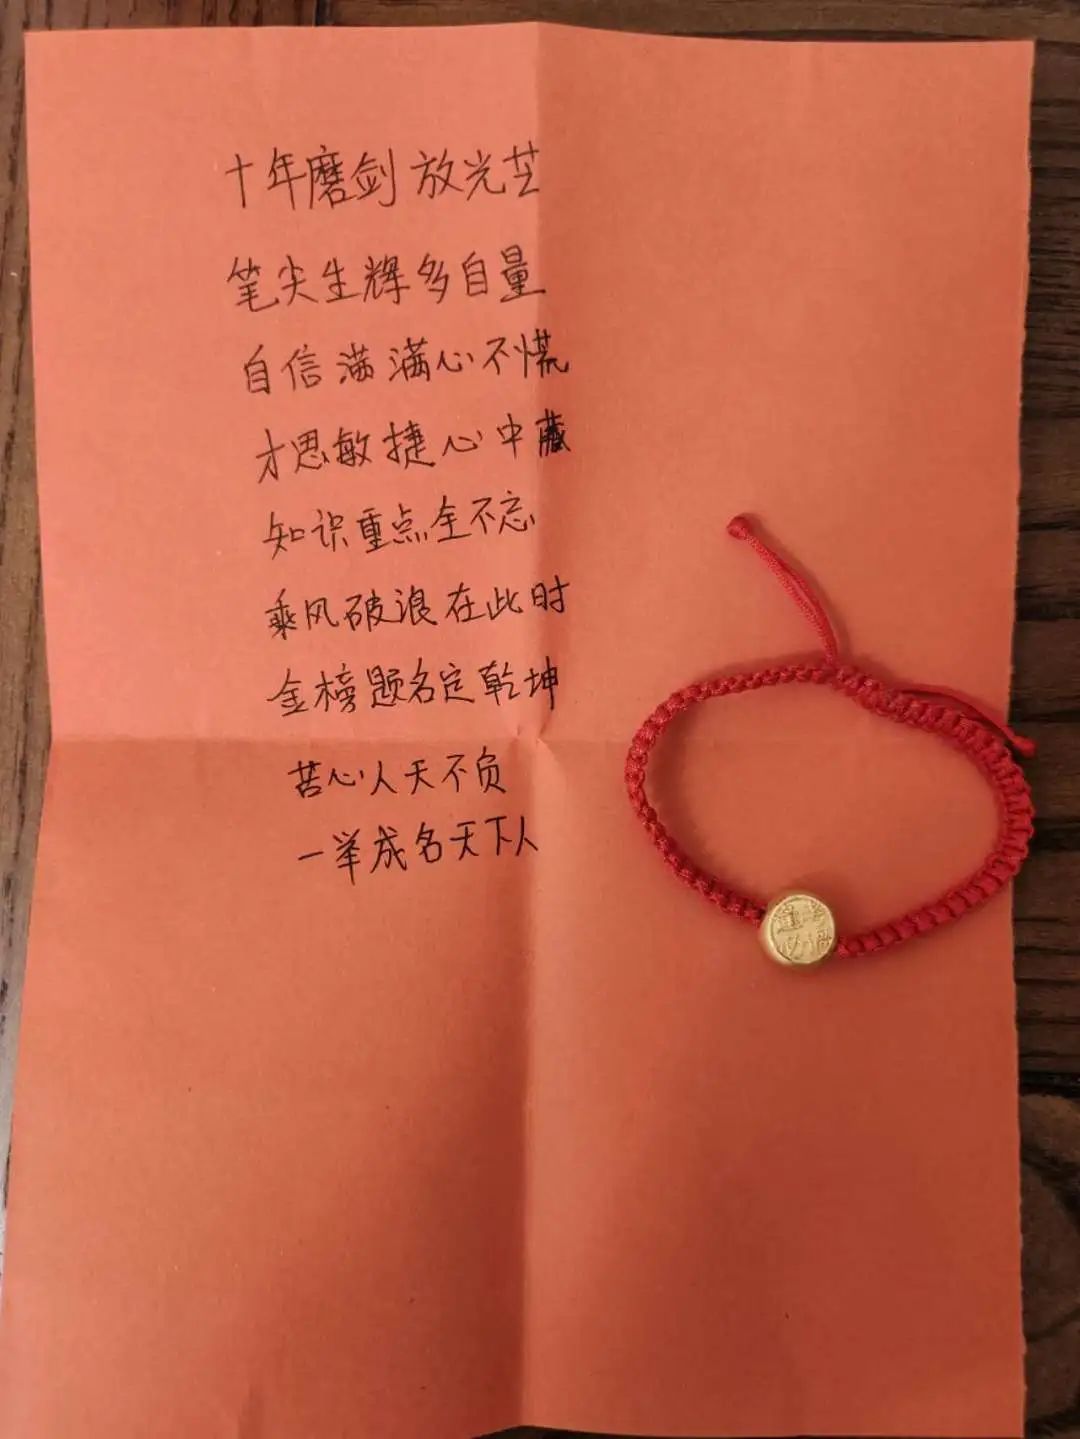 十年磨剑放光芒
笔尖生辉多自量
自信满满心不慌
才思敏捷心中藏
知识重点全不忘
乘风破浪在此时
金榜题名定乾坤
苦心人天不负
一举成名天下人